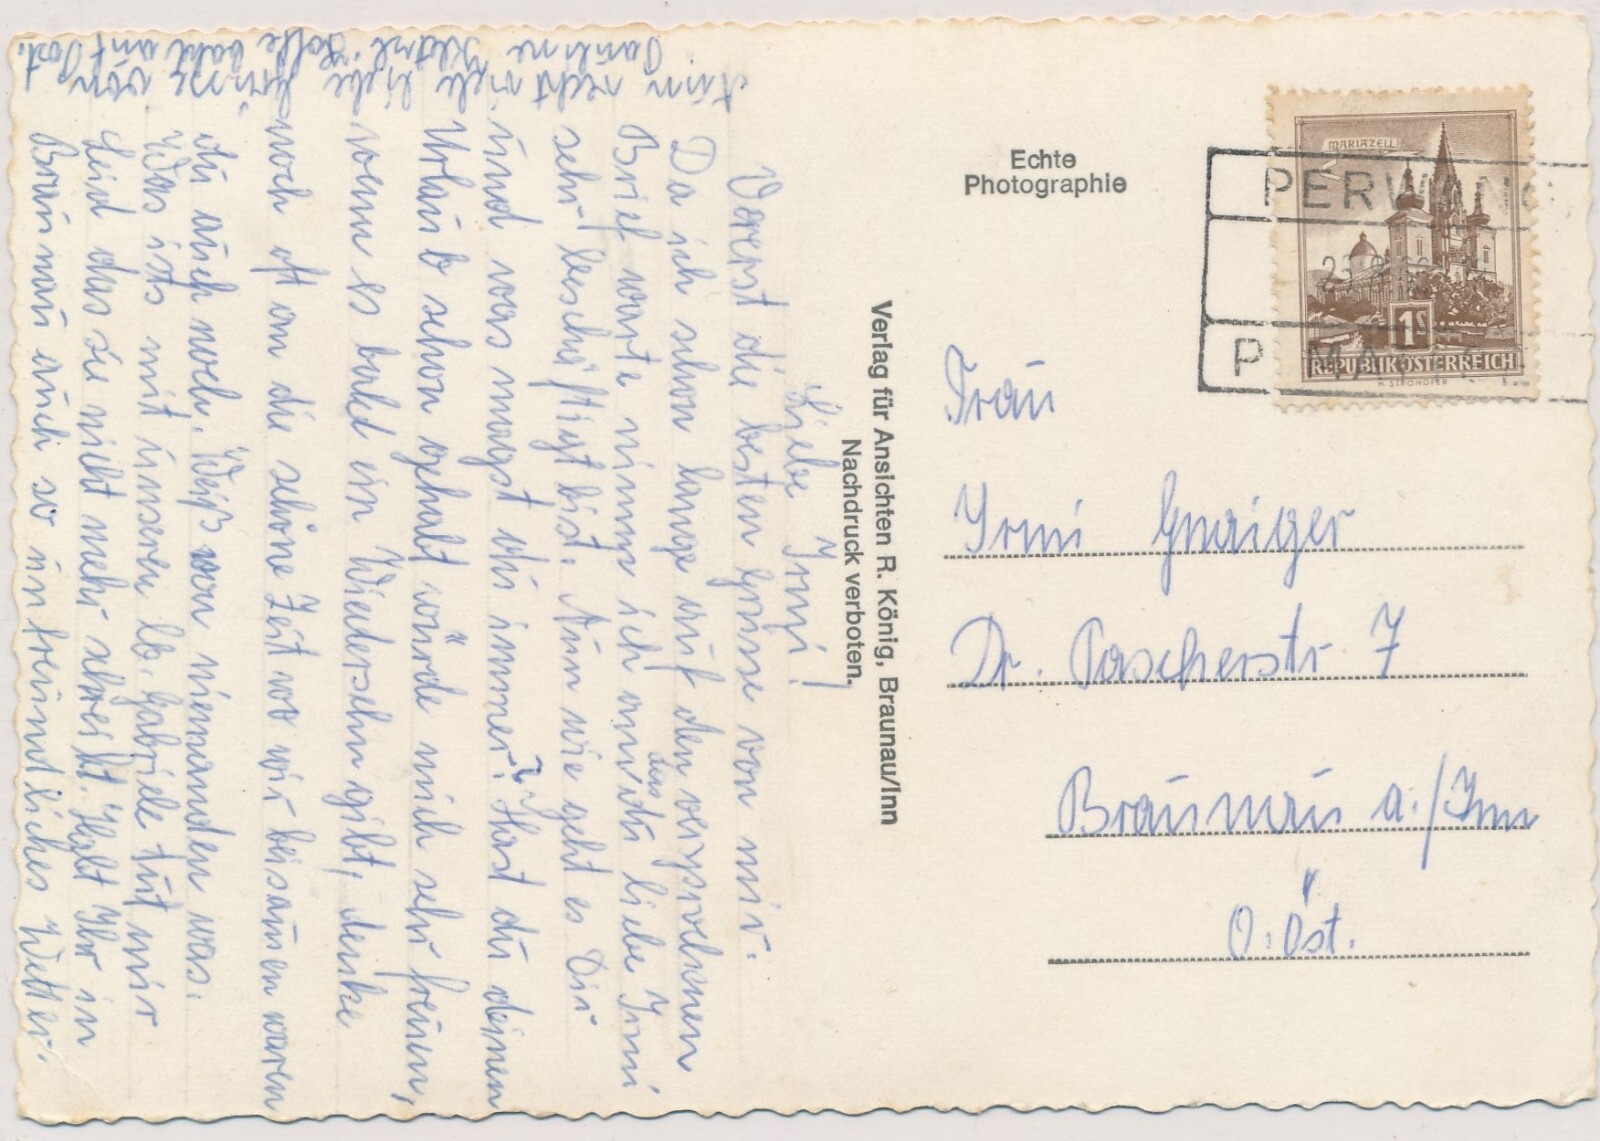 Liebe Irmi!
Vorerst die besten Grüsse von mir.
Da ich schon lange auf den versprochenen
Brief warte nimm ich an das du liebe Irmi
sehr beschäftigt bist. Nun wie geht es Dir
und was machst du immer? Hast du deinen
Urlaub schon gehabt würde mich sehr freuen,
wenn es bald ein Wiedersehn gibt, denke
noch oft an die schöne Zeit wo wir beisamen waren
du auch noch. Weiß von niemanden was.
Was ists mit unseren lb. Gabriele tut mir
Leid das sie nicht mehr schreibt. Habt Ihr in
Braunau auch so unfreundliches Wetter.
Nun recht viele liebe Grüsse von
Pauline Hoffe bald auf Post.
Echte
Photographie
Verlag für Ansichten R. König, Braunau/Inn
Nachdruck verboten.
MARIAZELL
1S
REPUBLIK ÖSTERREICH
H. STROHOFER
PERWANG
P
Frau
Irmi Gnaiger
Dr. Pascherstr 7
Braunau a./Inn
O.Öst.